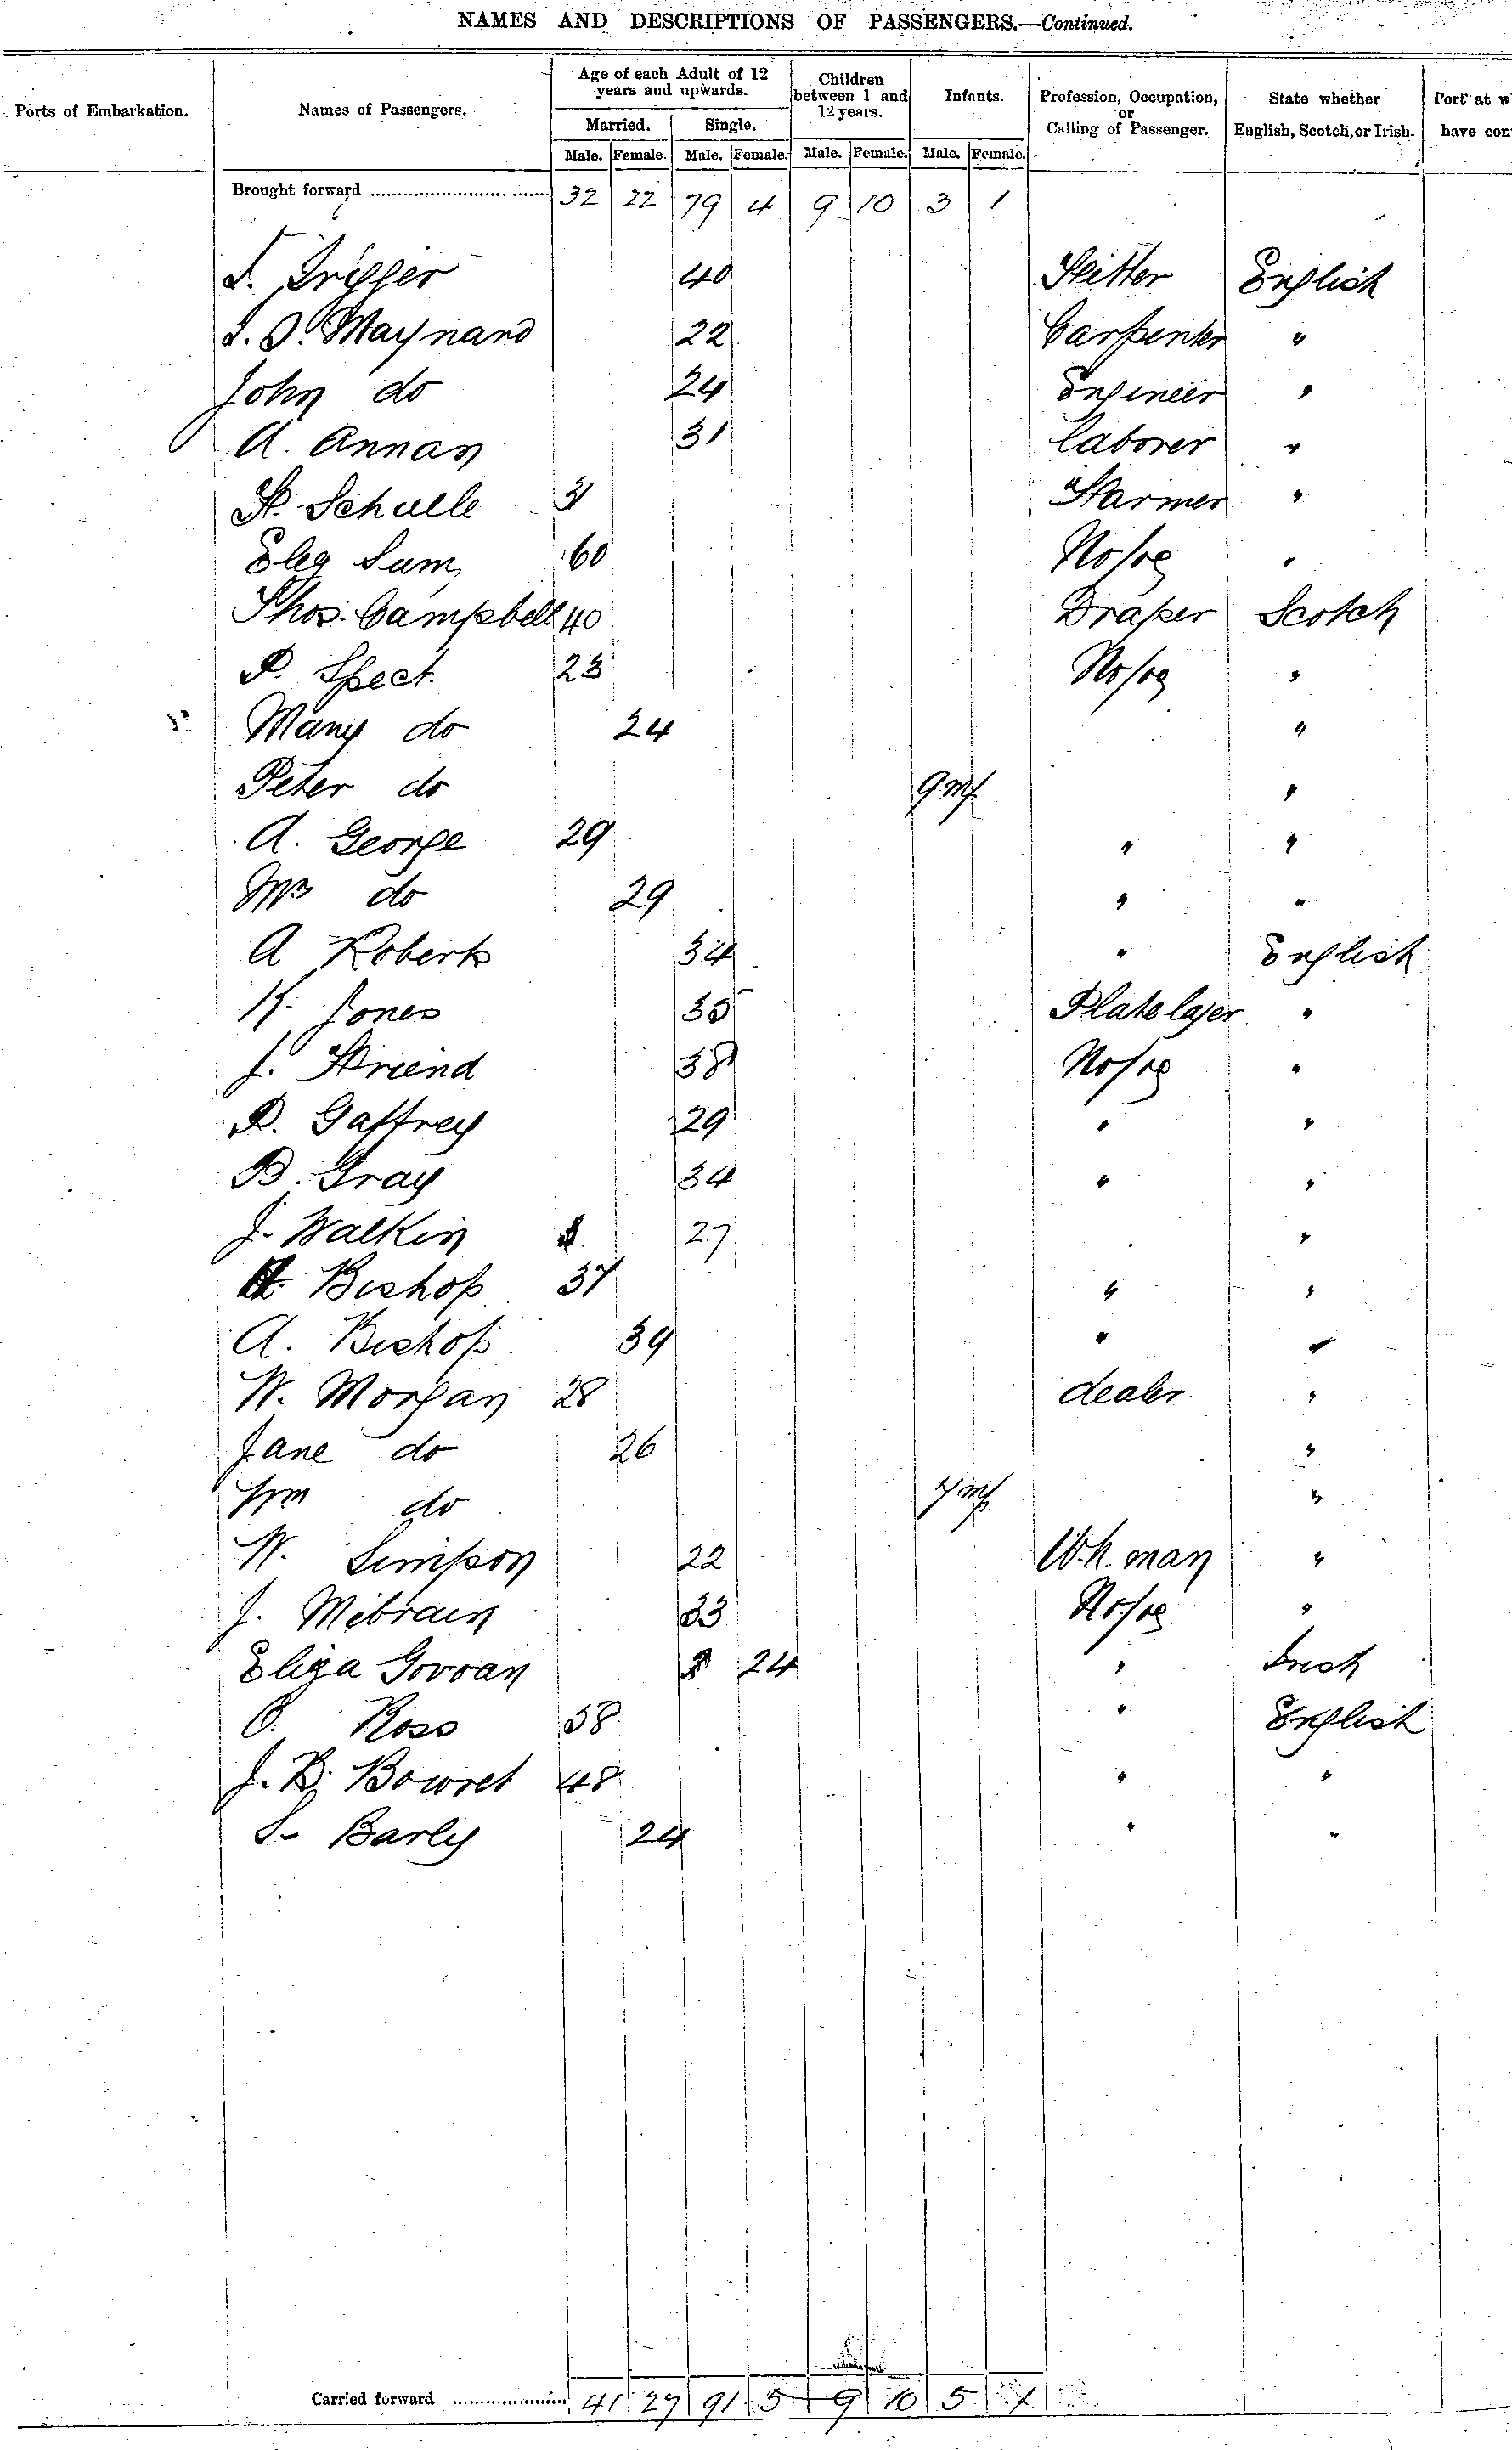 NAMES AND DESCRIPTIONS OF PASSENGERS.—Continued.
Ports of Embarkation. Names of Passengers. Age of each Adult of 12 years and upwards. Children between 1 and 12 years. Infants. Profession, Occupation, or Calling of Passenger. State whether English, Scotch, or Irish. Port at w have con
Married. Single.
Male. Female. Male. Female. Male. Female. Male. Female.
Brought forward 32 22 79 4 9 10 3 1
T. Trigger 40 Fitter English
J. Maynard 22 Carpenter "
John do 24 Engineer "
A. Annan 31 laborer "
31 Farmer "
60 "
Thos. Campbell 40 Draper Scotch
P. Spect. 23 "
Mary do 24 "
Peter do 9 "
A. George 29 " "
Mrs do 29 " "
A Roberts 34 " English
K. Jones 35 Platelayer "
J. Friend 38 "
P. Gaffrey 29 " "
B. Gray 34 " "
J. Walkin 27 "
Bishop 37 " "
A. Bishop 39 " "
W. Morgan 28 dealer "
Jane do 26 "
Wm do "
W. Simpson 22 W.h. man "
J. 33 "
Eliza 24 " Irish
Ross 38 " English
J. B. Bowret 48 " "
S. Barly 24 " "
Carried forward 41 27 91 5 9 10 5 1